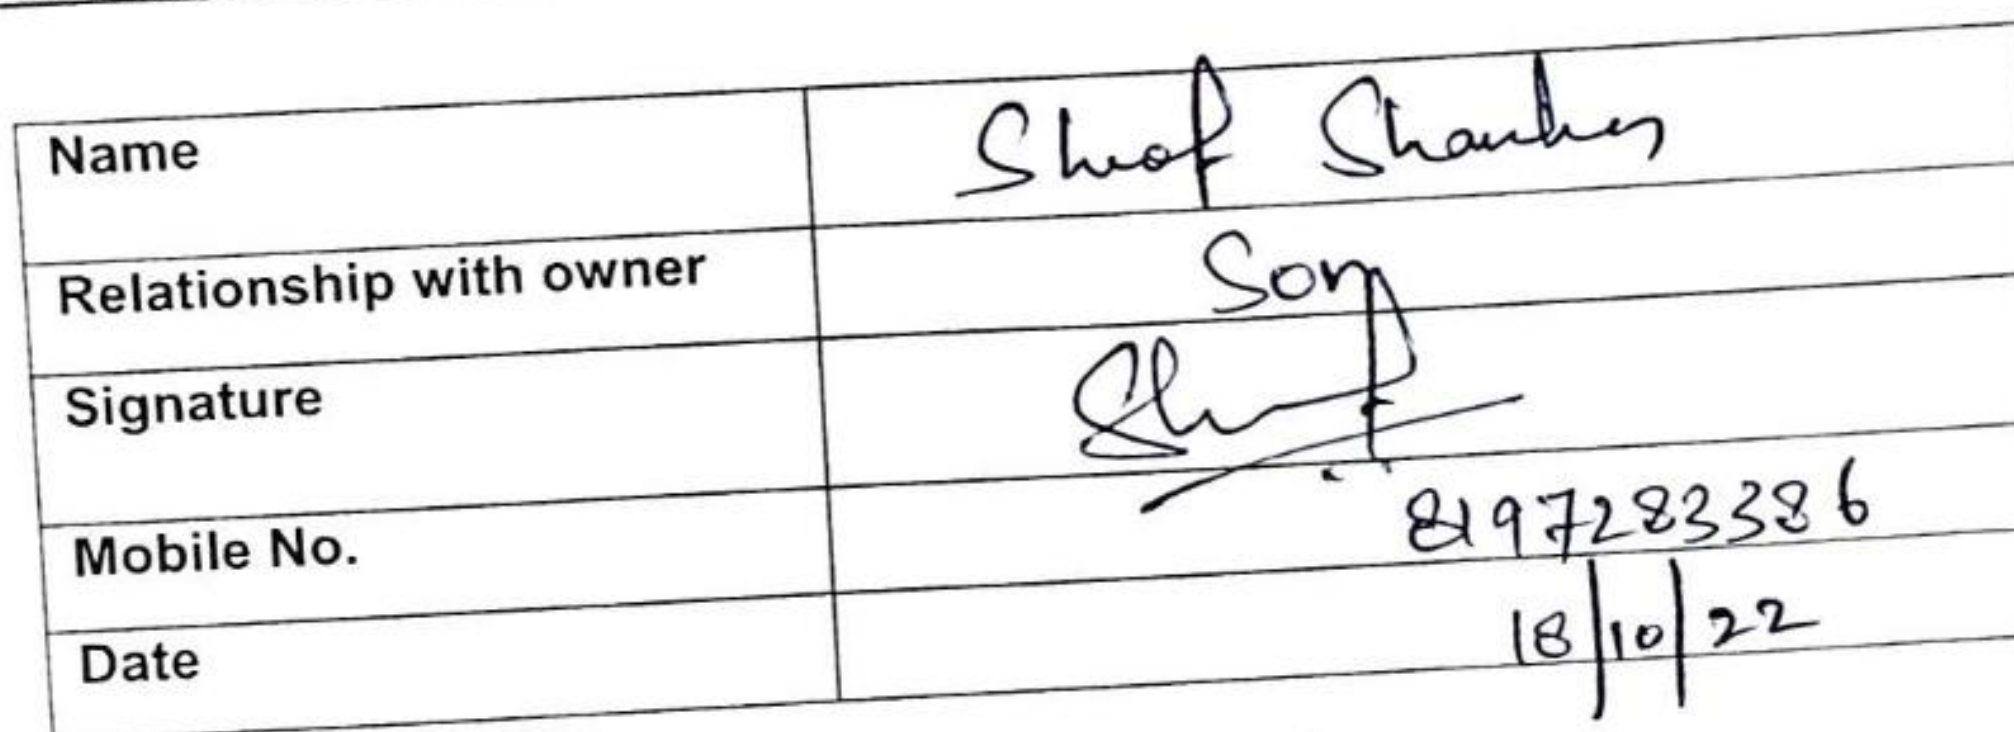 Name Shrof Shanker
Relationship with owner Son
Signature
Mobile No. 8197283386
Date 18/10/22